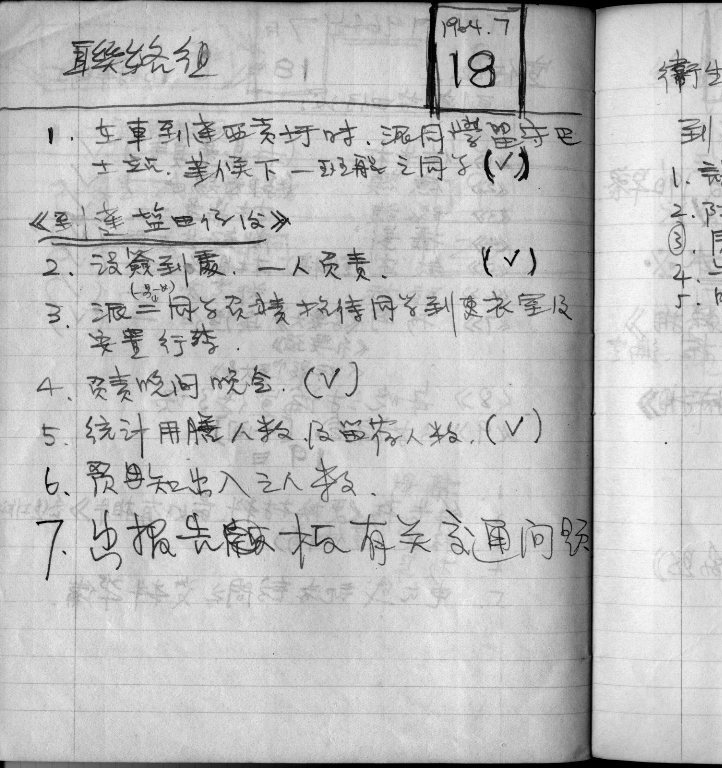 聯絡组
1964.7
18
1. 在車到達西贡圩时、派同學留守巴
士站.等候下一班船之同学(√)
《到達盐田仔後》
2. 设簽到處. 一人负责. (√)
3. 派二同学负责招待同学到更衣室及
安置行李.
4. 负责晚间晚会.(√)
5. 统计用膳人数.及留宿人数.(√)
6. 预知出入之人数.
7. 出报告板有关交通问题
衞生
到
1.
2.
③.
4. 一
5.